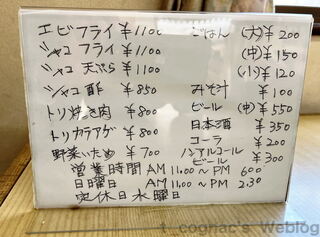 エビフライ ¥1100
シャコ フライ ¥1100
シャコ 天ぷら ¥1100
シャコ 酢 ¥850
トリ焼き肉 ¥800
トリカラアゲ ¥800
野菜いため ¥700
ごはん (大) ¥200
(中) ¥150
(小) ¥120
みそ汁 ¥100
ビール (中) ¥550
日本酒 ¥350
コーラ ¥200
ノンアルコール
ビール ¥300
営業時間 AM 11.00 ~ PM 6.00
日曜日 AM 11.00 ~ PM 2.30
定休日水曜日
cognac's Weblog